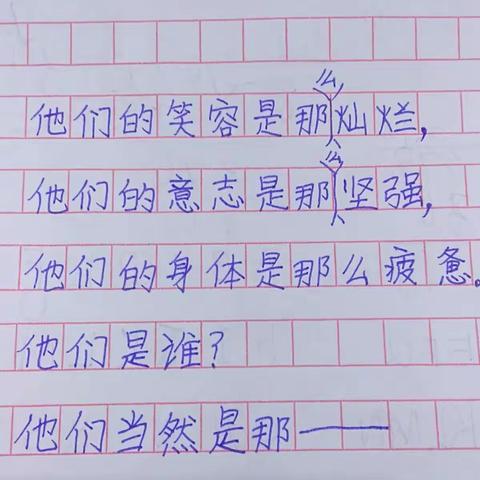 他们的笑容是那么灿烂,
他们的意志是那么坚强,
他们的身体是那么疲惫。
他们是谁?
他们当然是那——